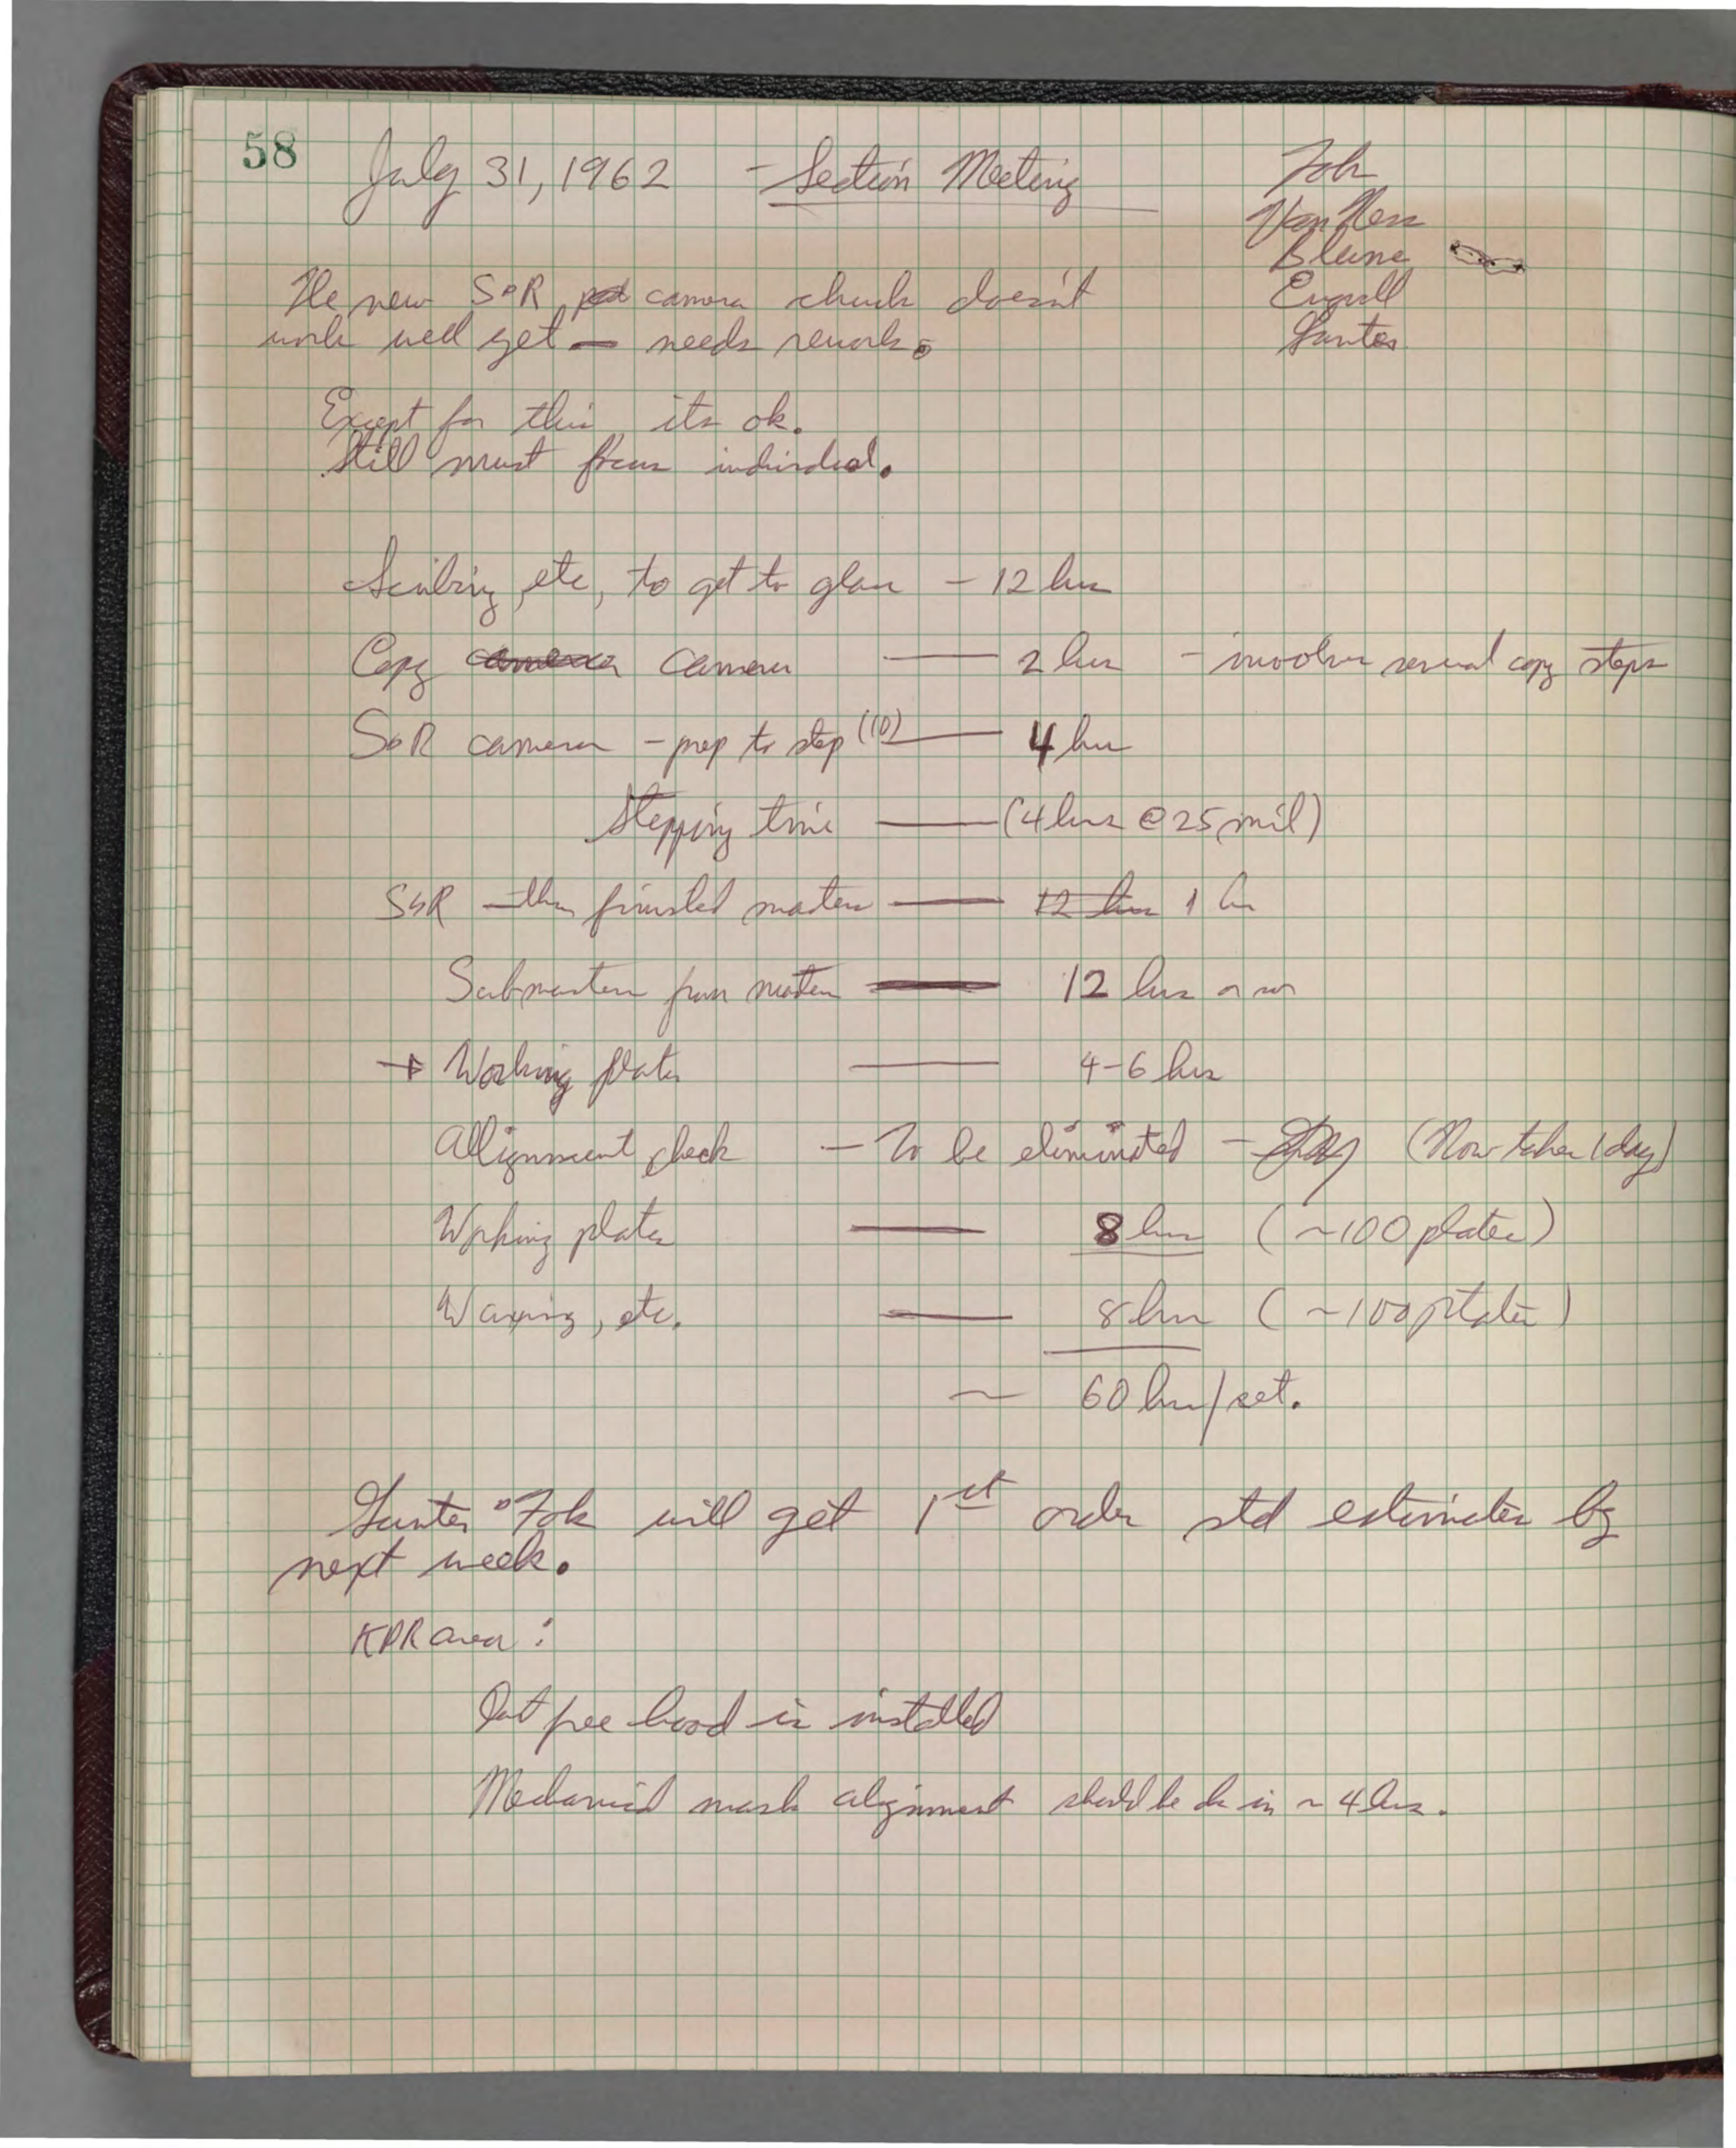 58
July 31, 1962 - Section Meeting
Fok
Van Ness
Blume
Gunter
The new S&R camera chuck doesn't
work well yet — needs rework.
Except for this its ok.
Still must focus individual.
Scribing, etc, to get to glass - 12 hrs
Copy camera — 2 hrs - involves several copy steps
S&R camera - prep to step (10) — 4 hrs
Stepping time — (4 hrs @ 25 mil)
S&R - thru finished masters — 12 hrs 1 hr
Submasters from masters — 12 hrs or so
→ Working plates — 4-6 hrs
Allignment check - To be eliminated - (Now takes 1 day)
Working plates — 8 hrs (~100 plates)
Waxing, etc. — 8 hrs (~100 plates)
~ 60 hrs/set.
Gunter & Fok will get 1st order std estimates by
next week.
KPR area:
Dust free hood is installed
Mechanical mask alignment should be in ~ 4 hrs.